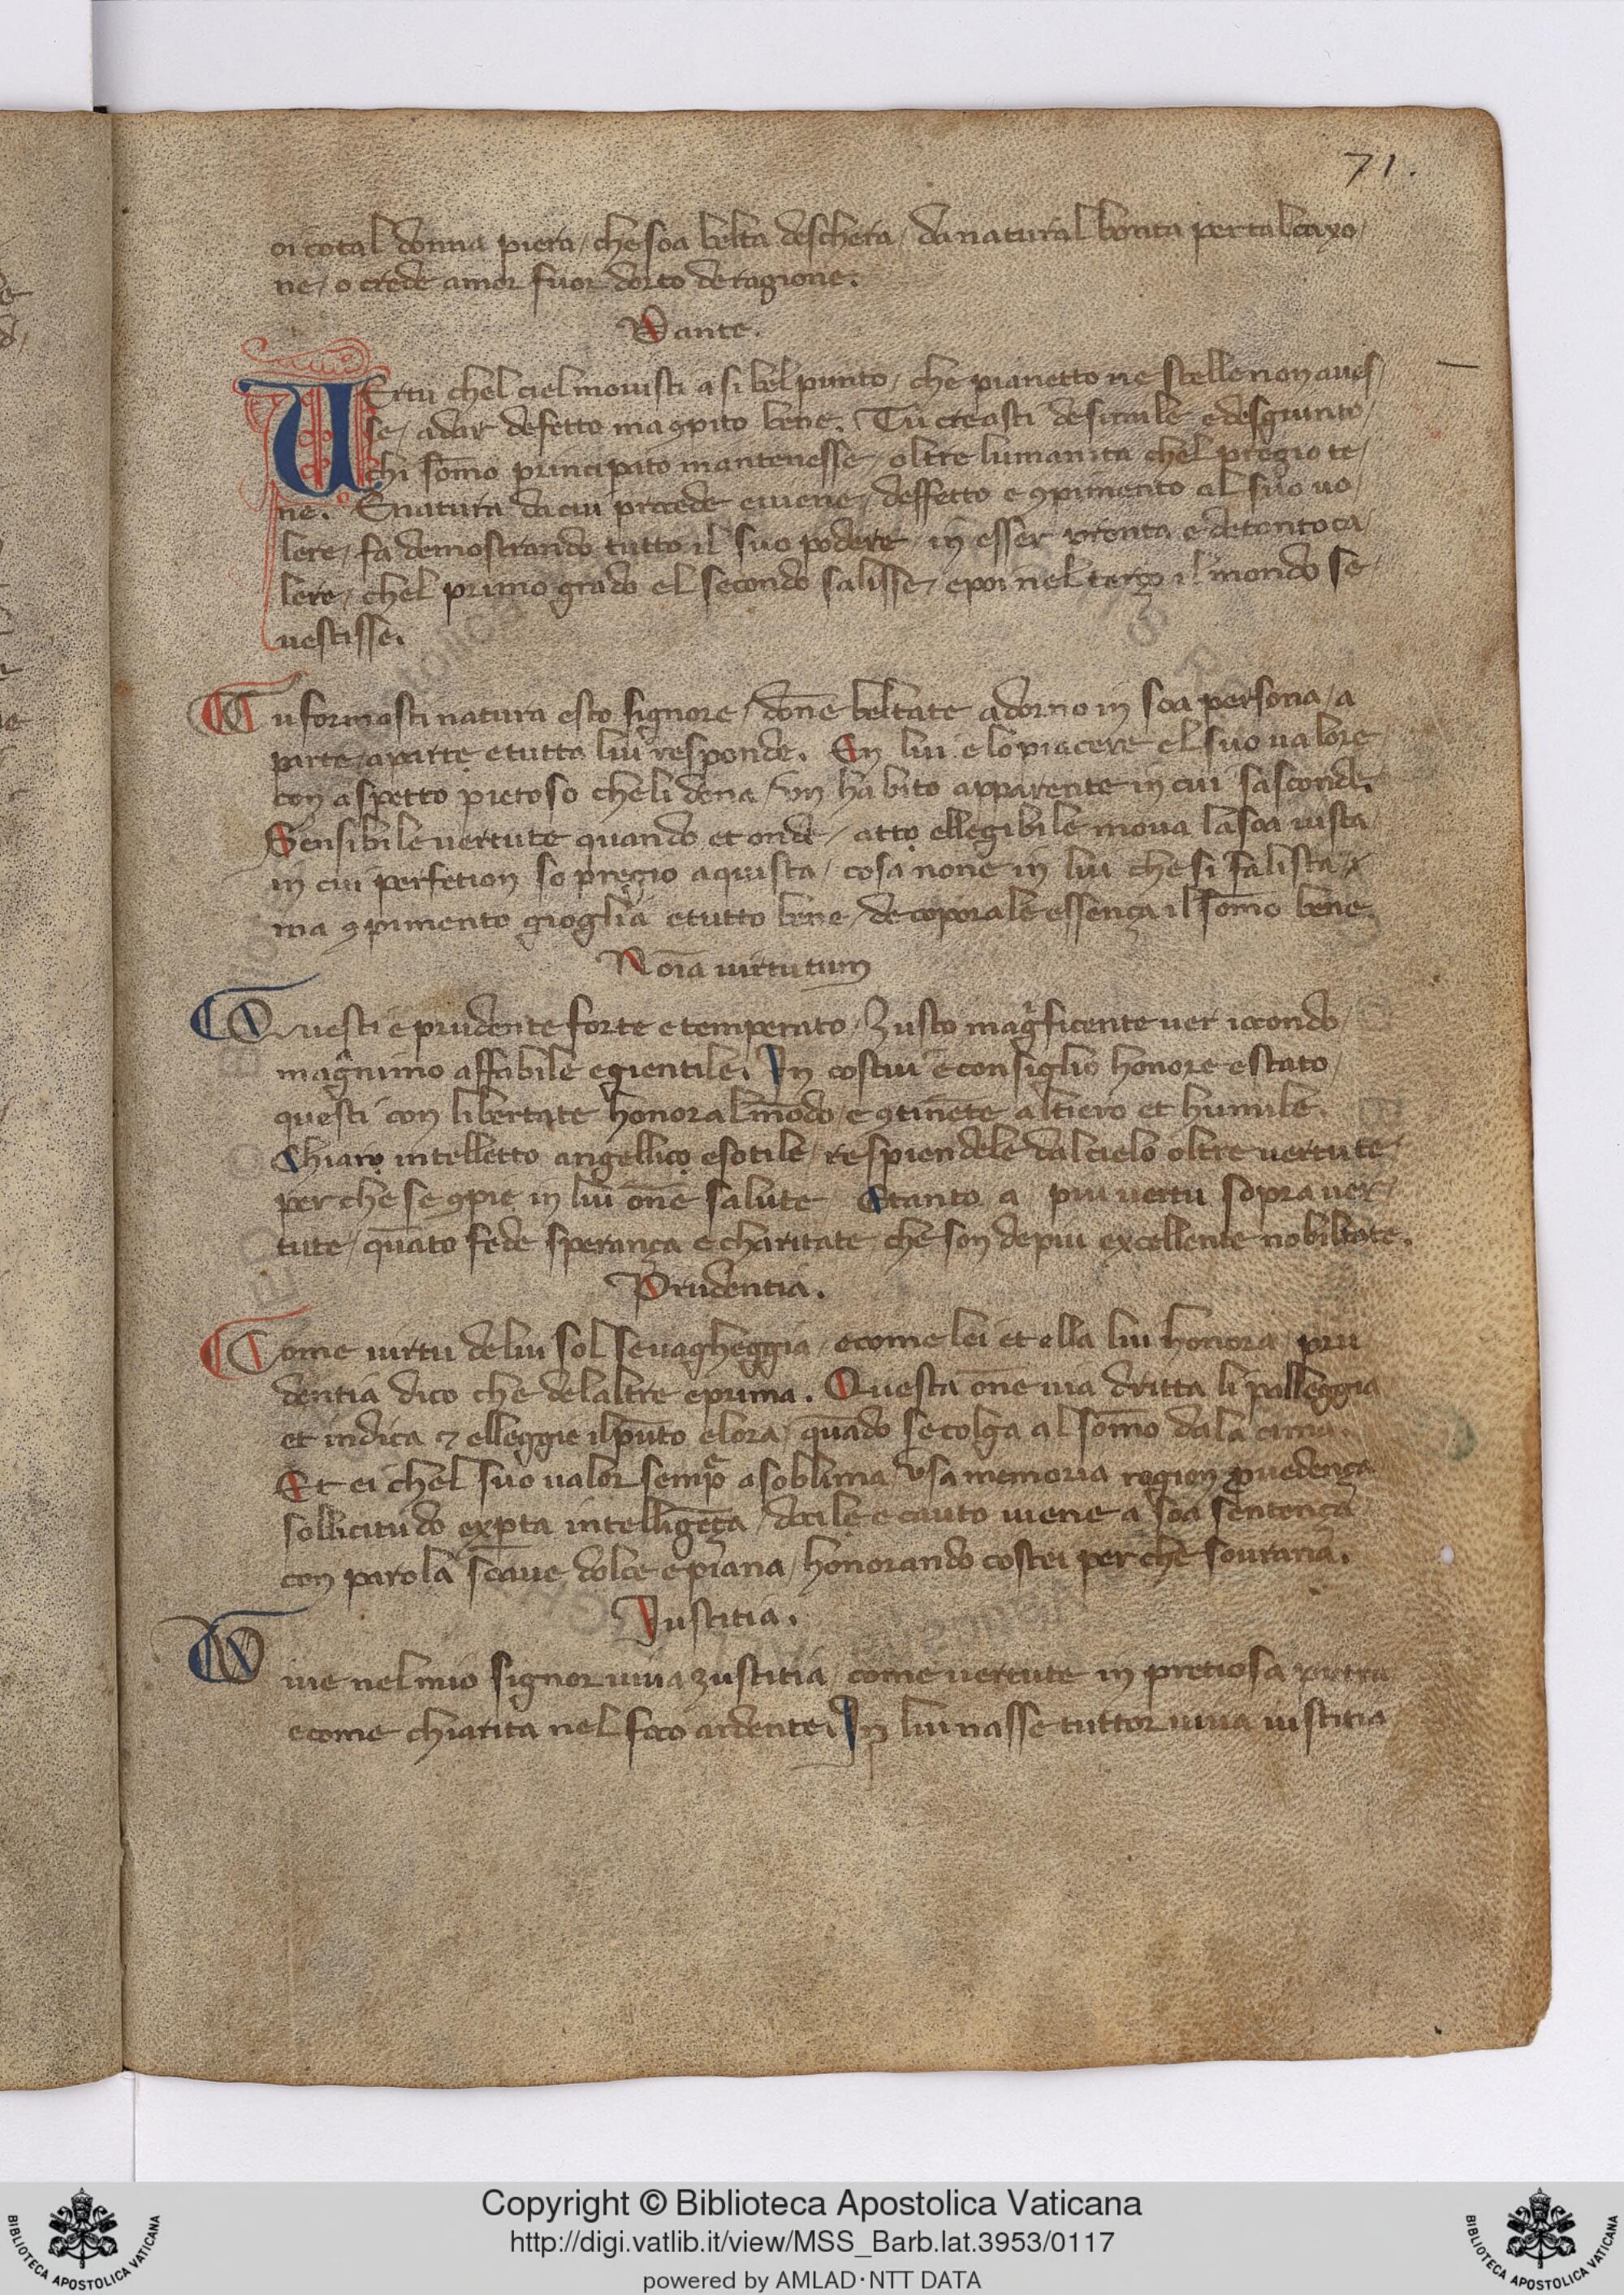 71.
oi cotal donna piera / che soa belta deschera / da natural bonta per tal caxo /
ne / o crede amor fuor dorto de ragione.
Dante.
UErtu chel ciel mouisti a si bel punto / che pianetto ne stelle non aues /
se / a dar defetto ma ꝯpito bene. Tu creasti desimile e desgiunto /
chi som̄o principato mantenesse / oltre lumanita chel pregio te /
ne. Enatura da cui procede euiene / deffetto e ꝯpimento al suo uo /
lere / fa demostrando tutto il suo podere / in esser pronta e de tonto ca /
lere / chel primo grado el secondo salisse / epoi nel terço il mondo se /
uestisse.
Tu formasti natura esto signore / don̄e beltate adorno in soa persona / a
parte aparte e tutta lui responde. En lui e lo piacere el suo ualore
con aspetto pietoso che li dona / vn habito apparente in cui sasconde.
Sensibile uertute quando et onde / atto ellegibile moua la soa uista /
in cui perfetion so pregio aquista / cosa none in lui che si falista /
ma ꝯpimento gioglia e tutto bene / de coporale essença il som̄o bene.
Noīa uirtutum
Questi e prudente forte e temperato / Zusto mag̃ficente uer iocondo /
mag̃nimo affabile egientile. In costui e consiglio honore estato /
questi con libertate honora l mōdo / e ꝯtinēte altiero et humile.
Chiaro intelletto angellico esotile / respiendele dal cielo oltre uertute /
per che se ꝯpie in lui on̄e salute / Etanto a piu uertu sopra uer /
tute / quāto fede sperança e charitate / che son de piu excellente nobiltate.
Prudentia.
Come uirtu de lui sol se uagheggia / e come lei et ella lui honora / pru
dentia dico che de laltre eprima. Questa on̄e uia dritta li palleggia
et indica ⁊ elleggie il pūto elora / quādo se colga al som̄o da la cima.
Et ei chel suo ualor semp̄ asoblima / vsa memoria ragion ꝓuedença
sollicitudo exꝑta intelligēça / docile e cauto uiene a soa sentença
con parola soaue dolce epiana / honorando costei per che sourana.
Iustitia.
Viue nel mio signor uiua zustitia / come uertute in pretiosa pietra
e come chiarita nel foco ardente. In lui nasse tuttor uiua iustitia
Copyright © Biblioteca Apostolica Vaticana
http://digi.vatlib.it/view/MSS_Barb.lat.3953/0117
powered by AMLAD·NTT DATA
BIBLIOTECA APOSTOLICA VATICANA
BIBLIOTECA APOSTOLICA VATICANA